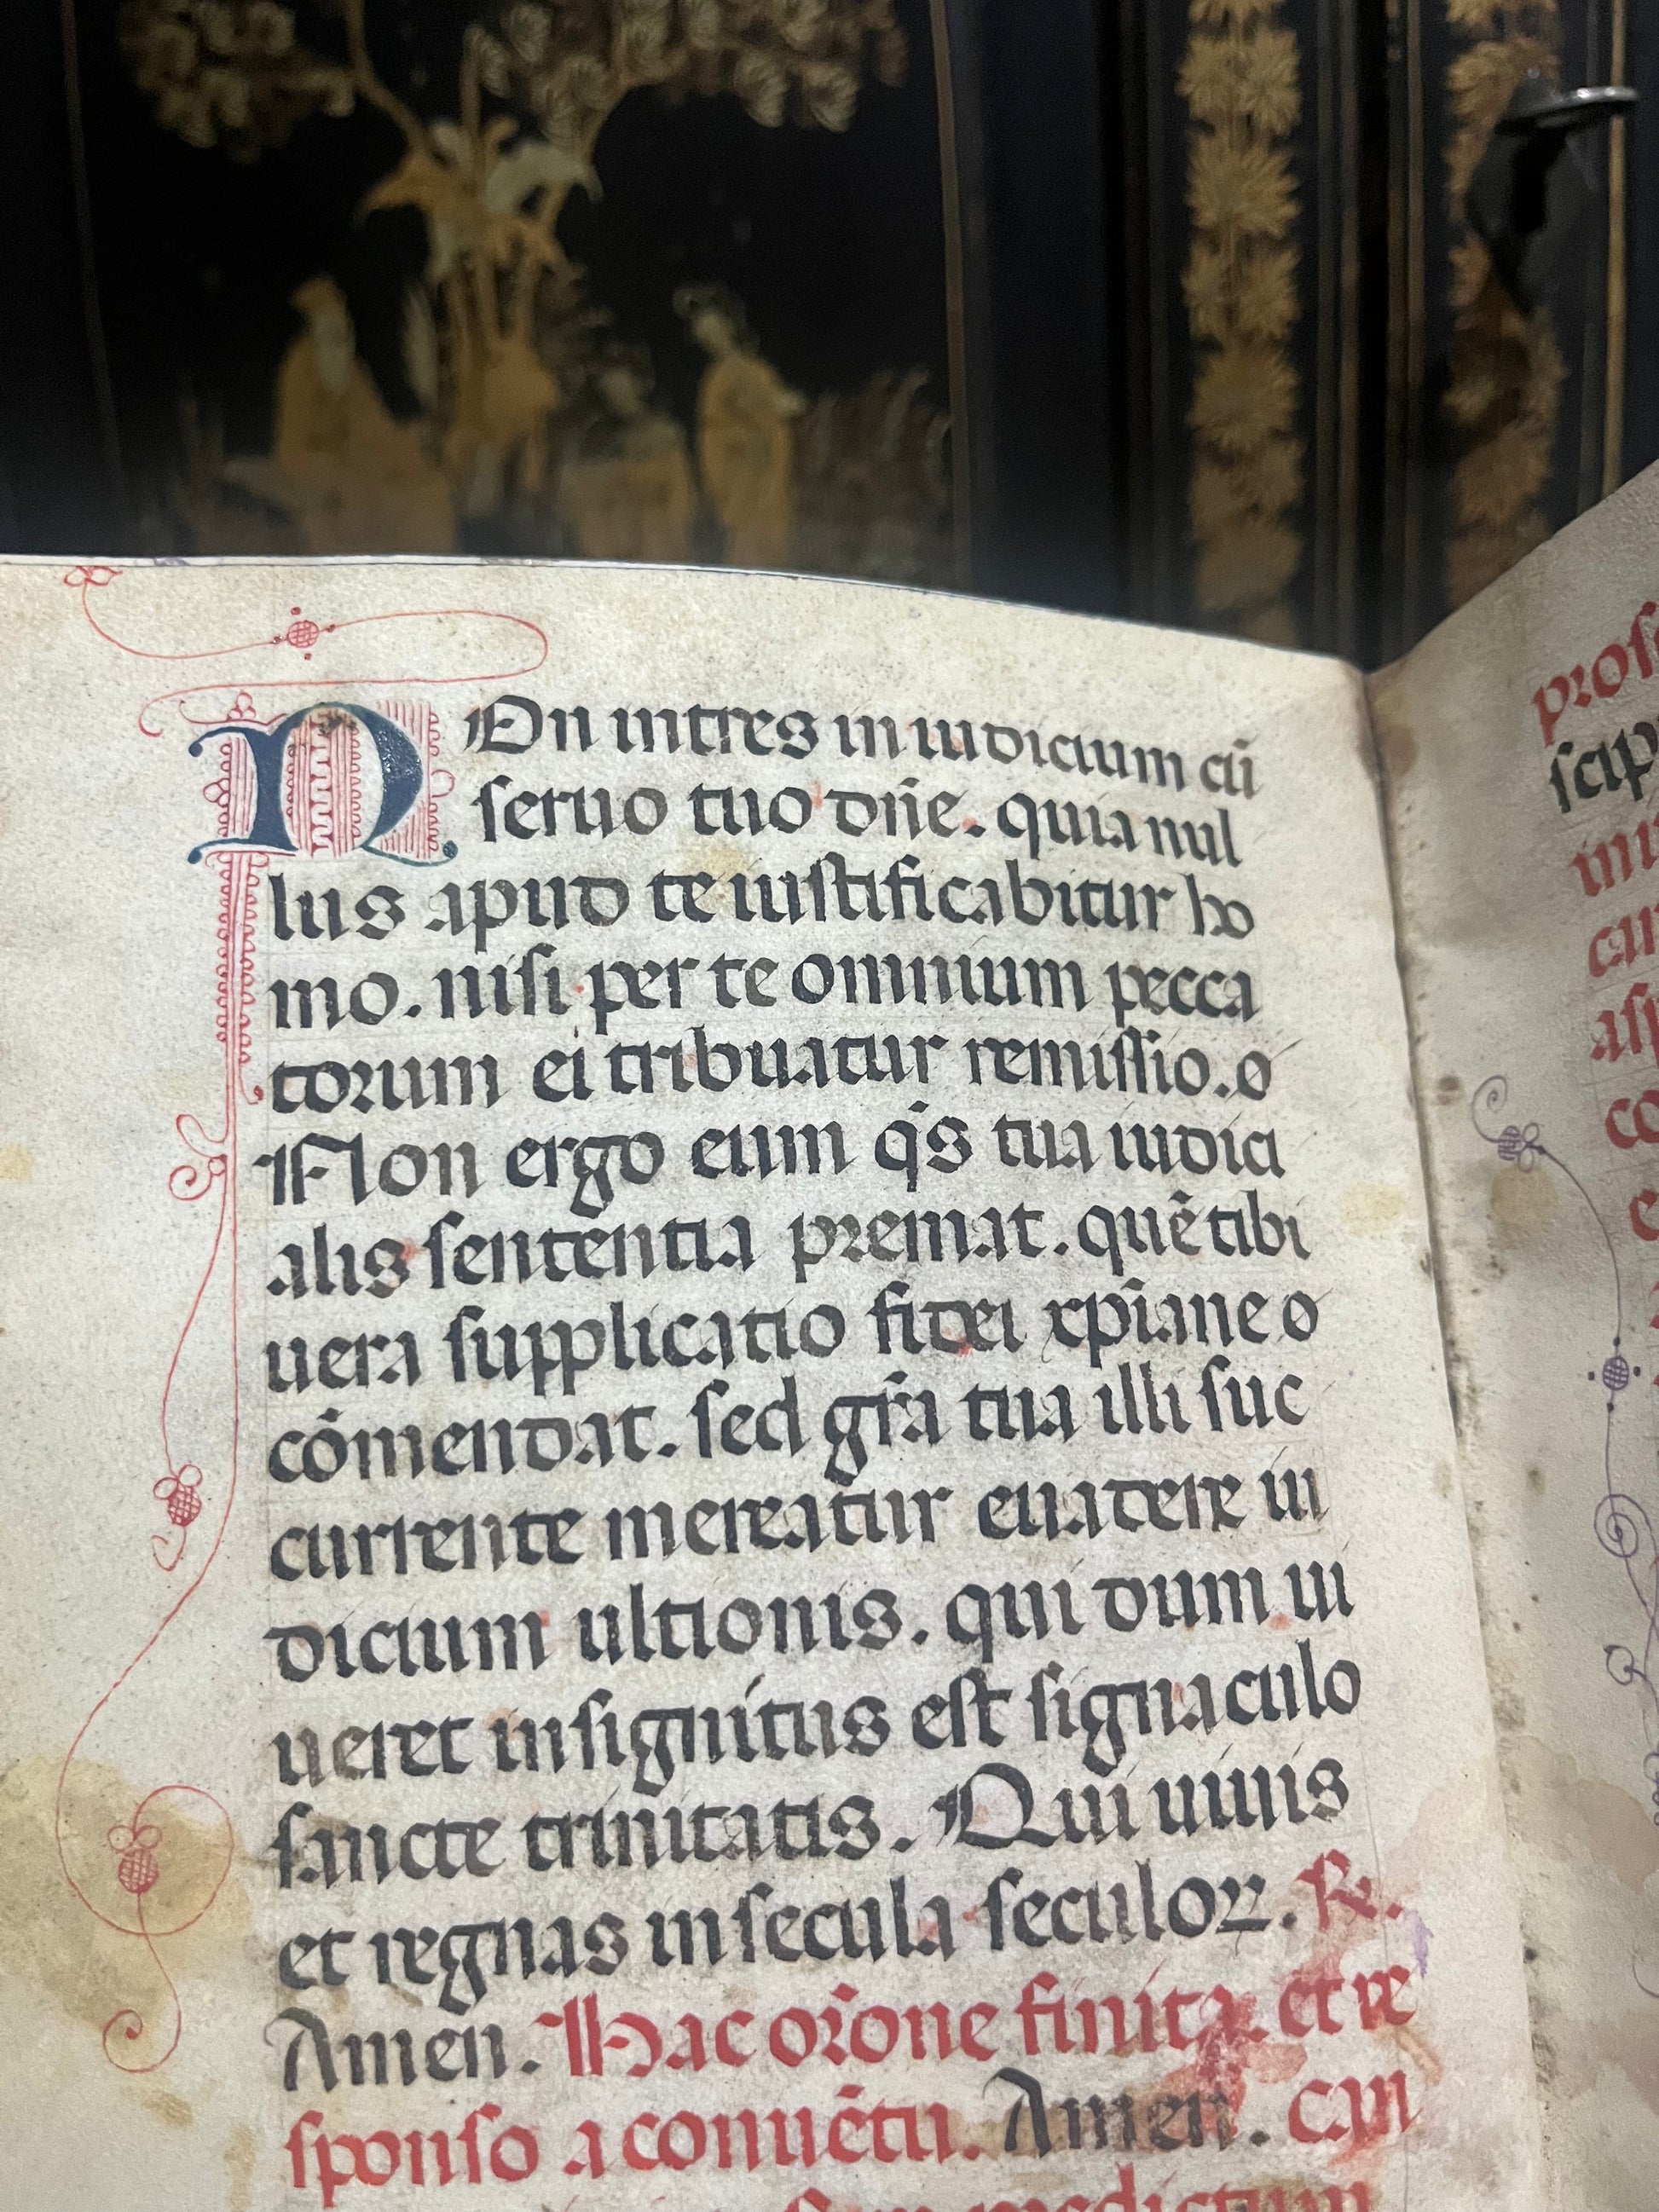 NOn intres in iudicium cū
seruo tuo dn̄e. quia nul
lus apud te iustificabitur ho
mo. nisi per te omnium pecca
torum ei tribuatur remissio. o
Non ergo eum q̄s tua iudici
alis sententia premat. quē tibi
uera supplicatio fidei xp̄iane o
cōmendat. sed gr̄a tua illi suc
currente mereatur euadere iu
dicium ultionis. qui dum ui
ueret insignitus est signaculo
sancte trinitatis. Qui uiuis
et regnas in secula seculoꝝ. ℞.
Amen. Hac or̄one finita. et re
sponso a conuētu. Amen. can
medictum
prof
scip
ini
can
asp
co
e